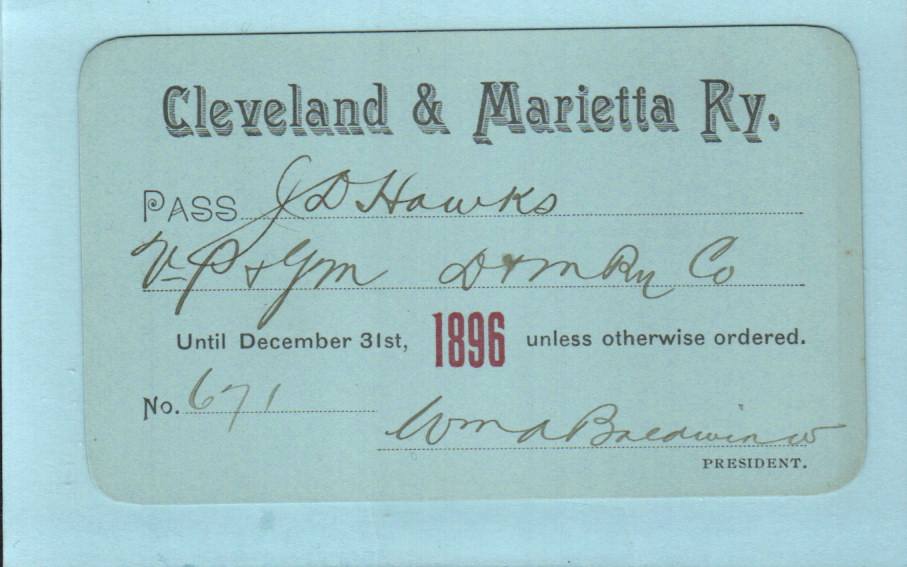 Cleveland & Marietta Ry.
PASS J D Hawks
V-P & Gm D & M Ry Co
Until December 31st, 1896 unless otherwise ordered.
No. 671
Wm A Baldwin
PRESIDENT.